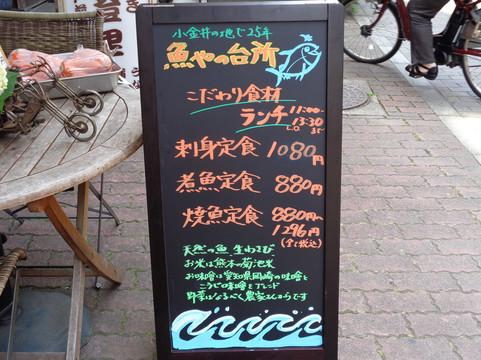 小金井の地で25年
魚やの台所
こだわり食材
ランチ 11:00~
13:30
L.O.
刺身定食 1080円
煮魚定食 880円
焼魚定食 880円~
1296円
(全て税込)
天然の魚 生わさび
お米は熊本の菊池米
お味噌は愛知県岡崎の味噌と
こうじ味噌をブレンド
野菜はなるべく農家さんからです